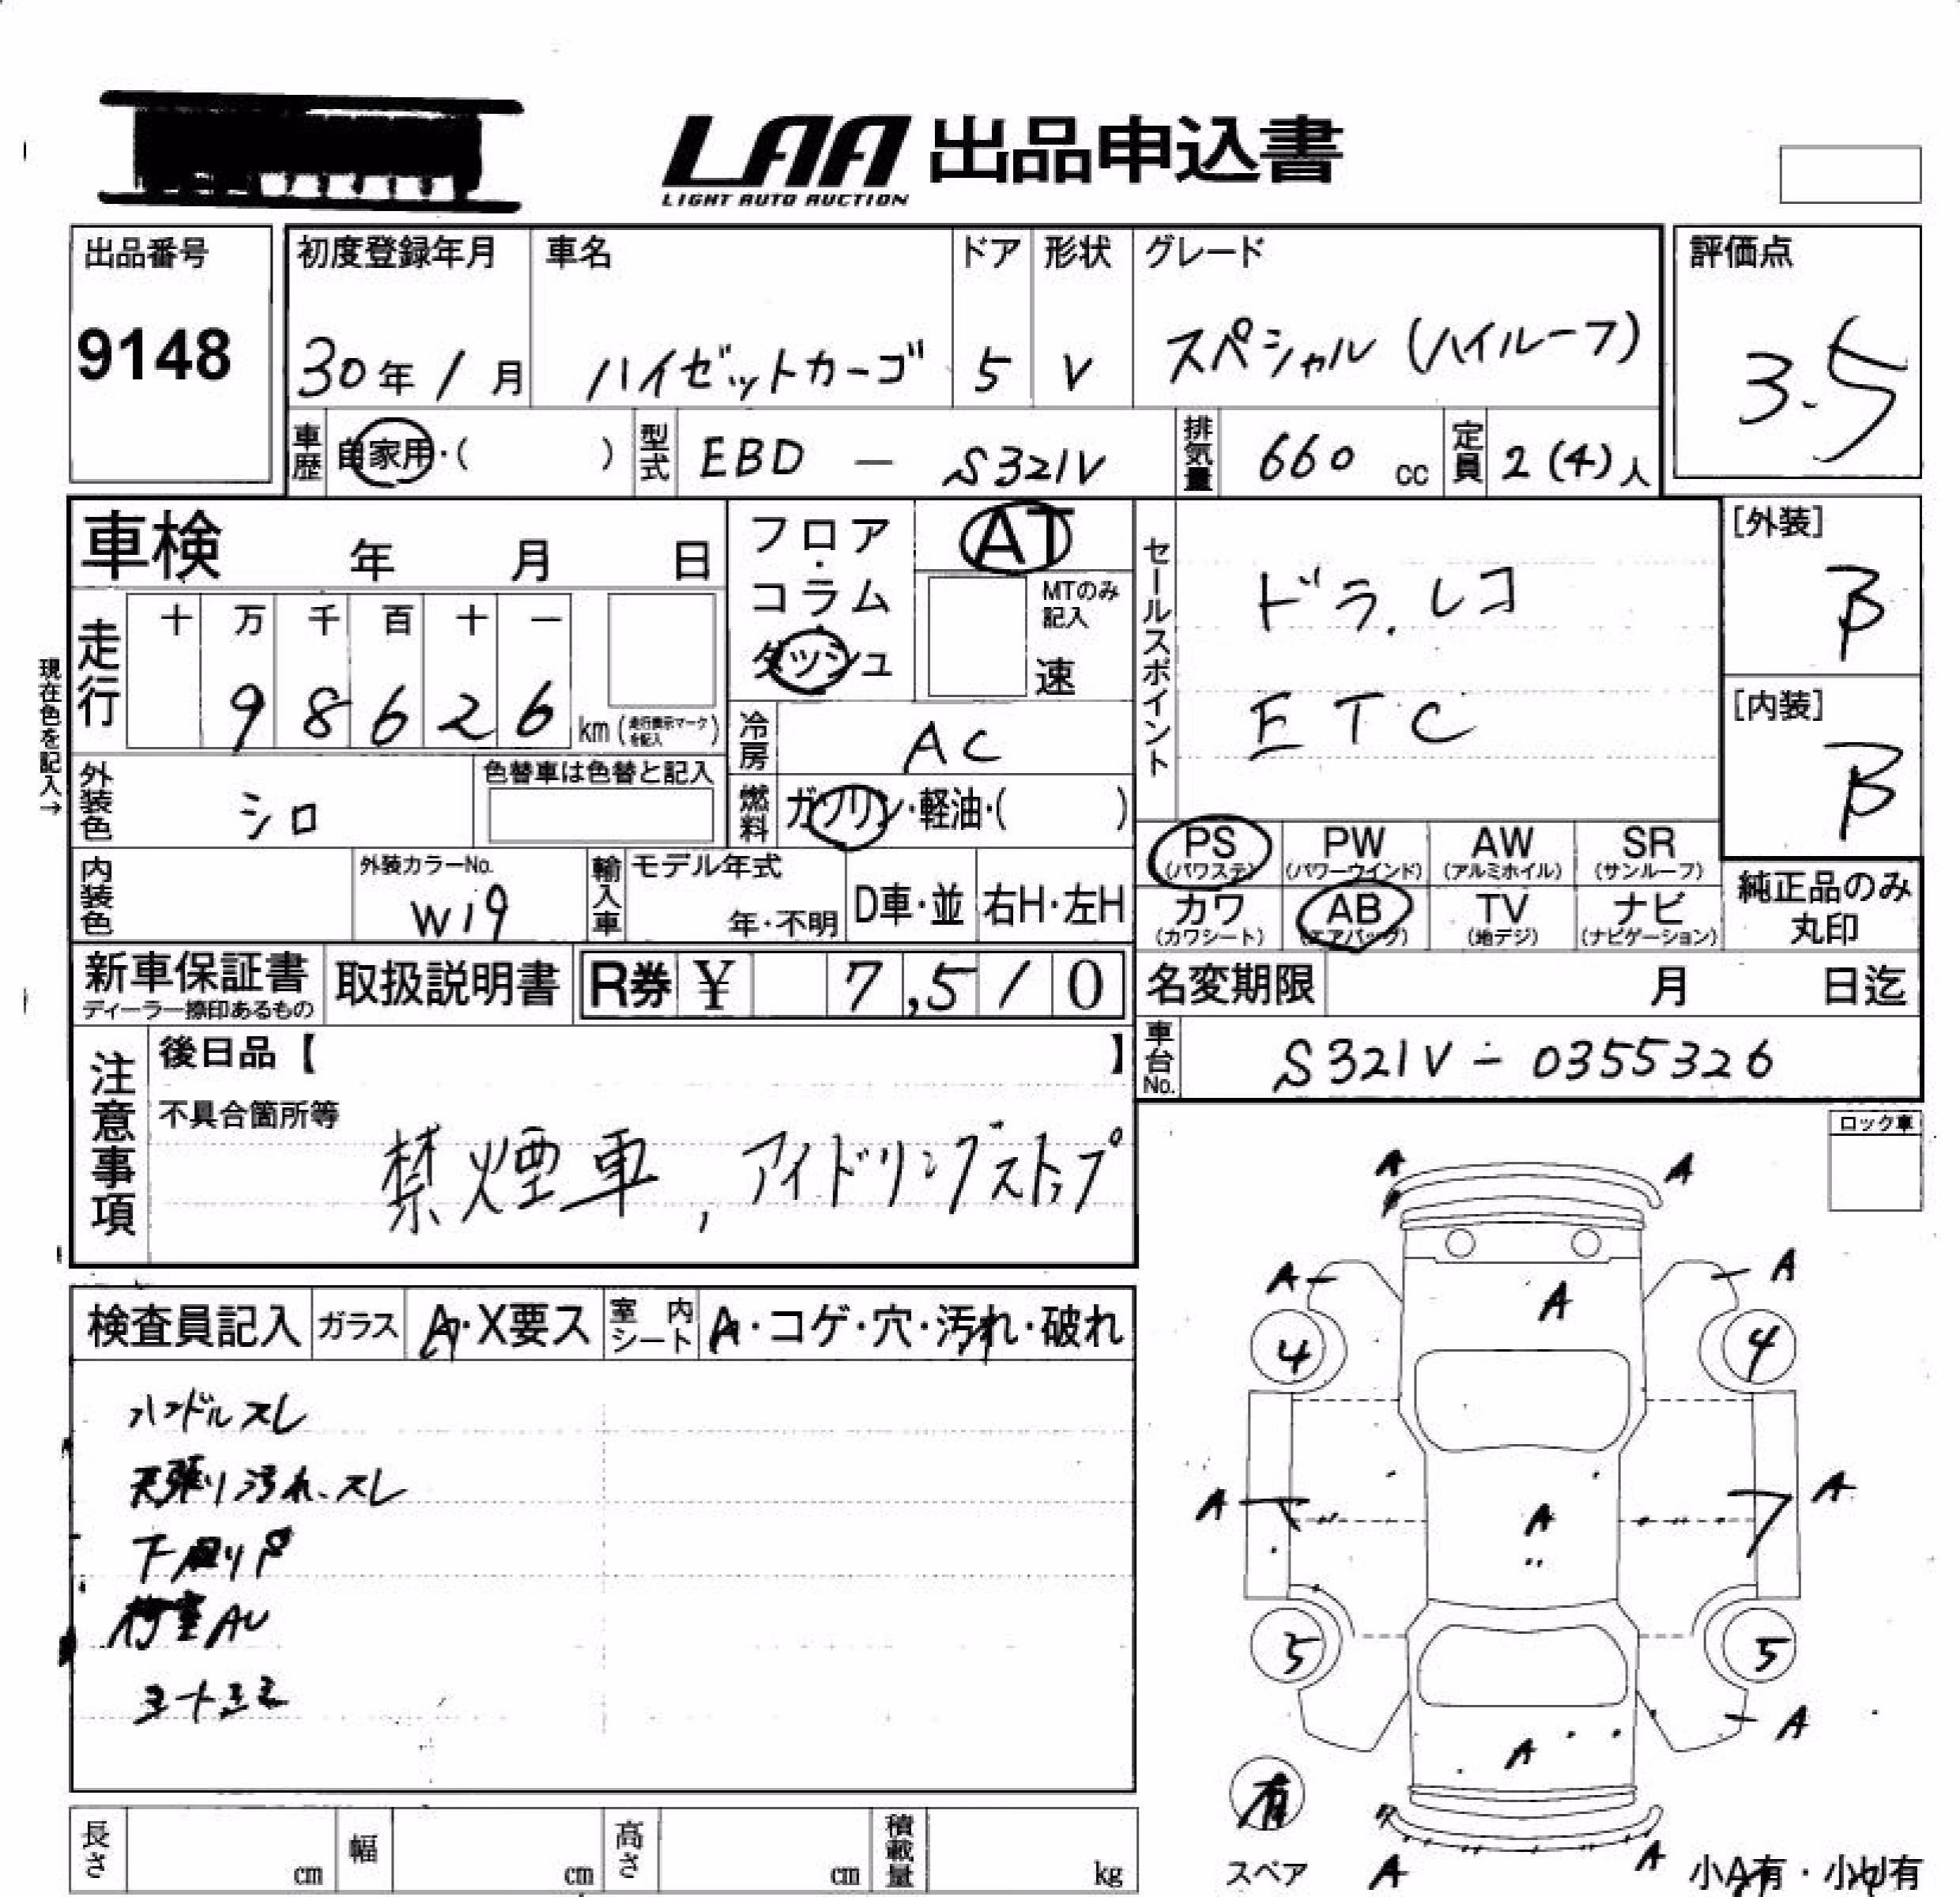 LAA 出品申込書
LIGHT AUTO AUCTION
出品番号 初度登録年月 車名 ドア 形状 グレード 評価点
9148 30年1月 ハイゼットカーゴ 5 V スペシャル(ハイルーフ) 3.5
車歴 自家用・( ) 型式 EBD - S321V 排気量 660 cc 定員 2(4)人
車検 年 月 日
フロア・コラム・ダッシュ
AT
MTのみ記入
速
セールスポイント
ドラ.レコ
ETC
[外装]
B
[内装]
B
現在色を記入→
走行 十 万 千 百 十 一
9 8 6 2 6 km(走行表示マークを記入)
冷房 AC
外装色 シロ 色替車は色替と記入
燃料 ガソリン・軽油・( )
PS PW AW SR
(パワステ) (パワーウインド) (アルミホイル) (サンルーフ)
カワ AB TV ナビ
(カワシート) (エアバッグ) (地デジ) (ナビゲーション)
純正品のみ
丸印
内装色 外装カラーNo. W19 輸入車 モデル年式 年・不明 D車・並 右H・左H
新車保証書 取扱説明書 R券 ¥ 7,510
ディーラー捺印あるもの
名変期限 月 日迄
車台No. S321V-0355326
注意事項
後日品【 】
不具合箇所等
禁煙車, アイドリングストップ
ロック車
検査員記入 ガラス A・X要ス 室内シート A・コゲ・穴・汚れ・破れ
ハンドルスレ
天張り汚れ、スレ
下廻りP
荷室AU
A A
A A
A
4 4
A A
A
5 5
A
A
有
スペア
A A
小A有・小U有
長さ cm 幅 cm 高さ cm 積載量 kg